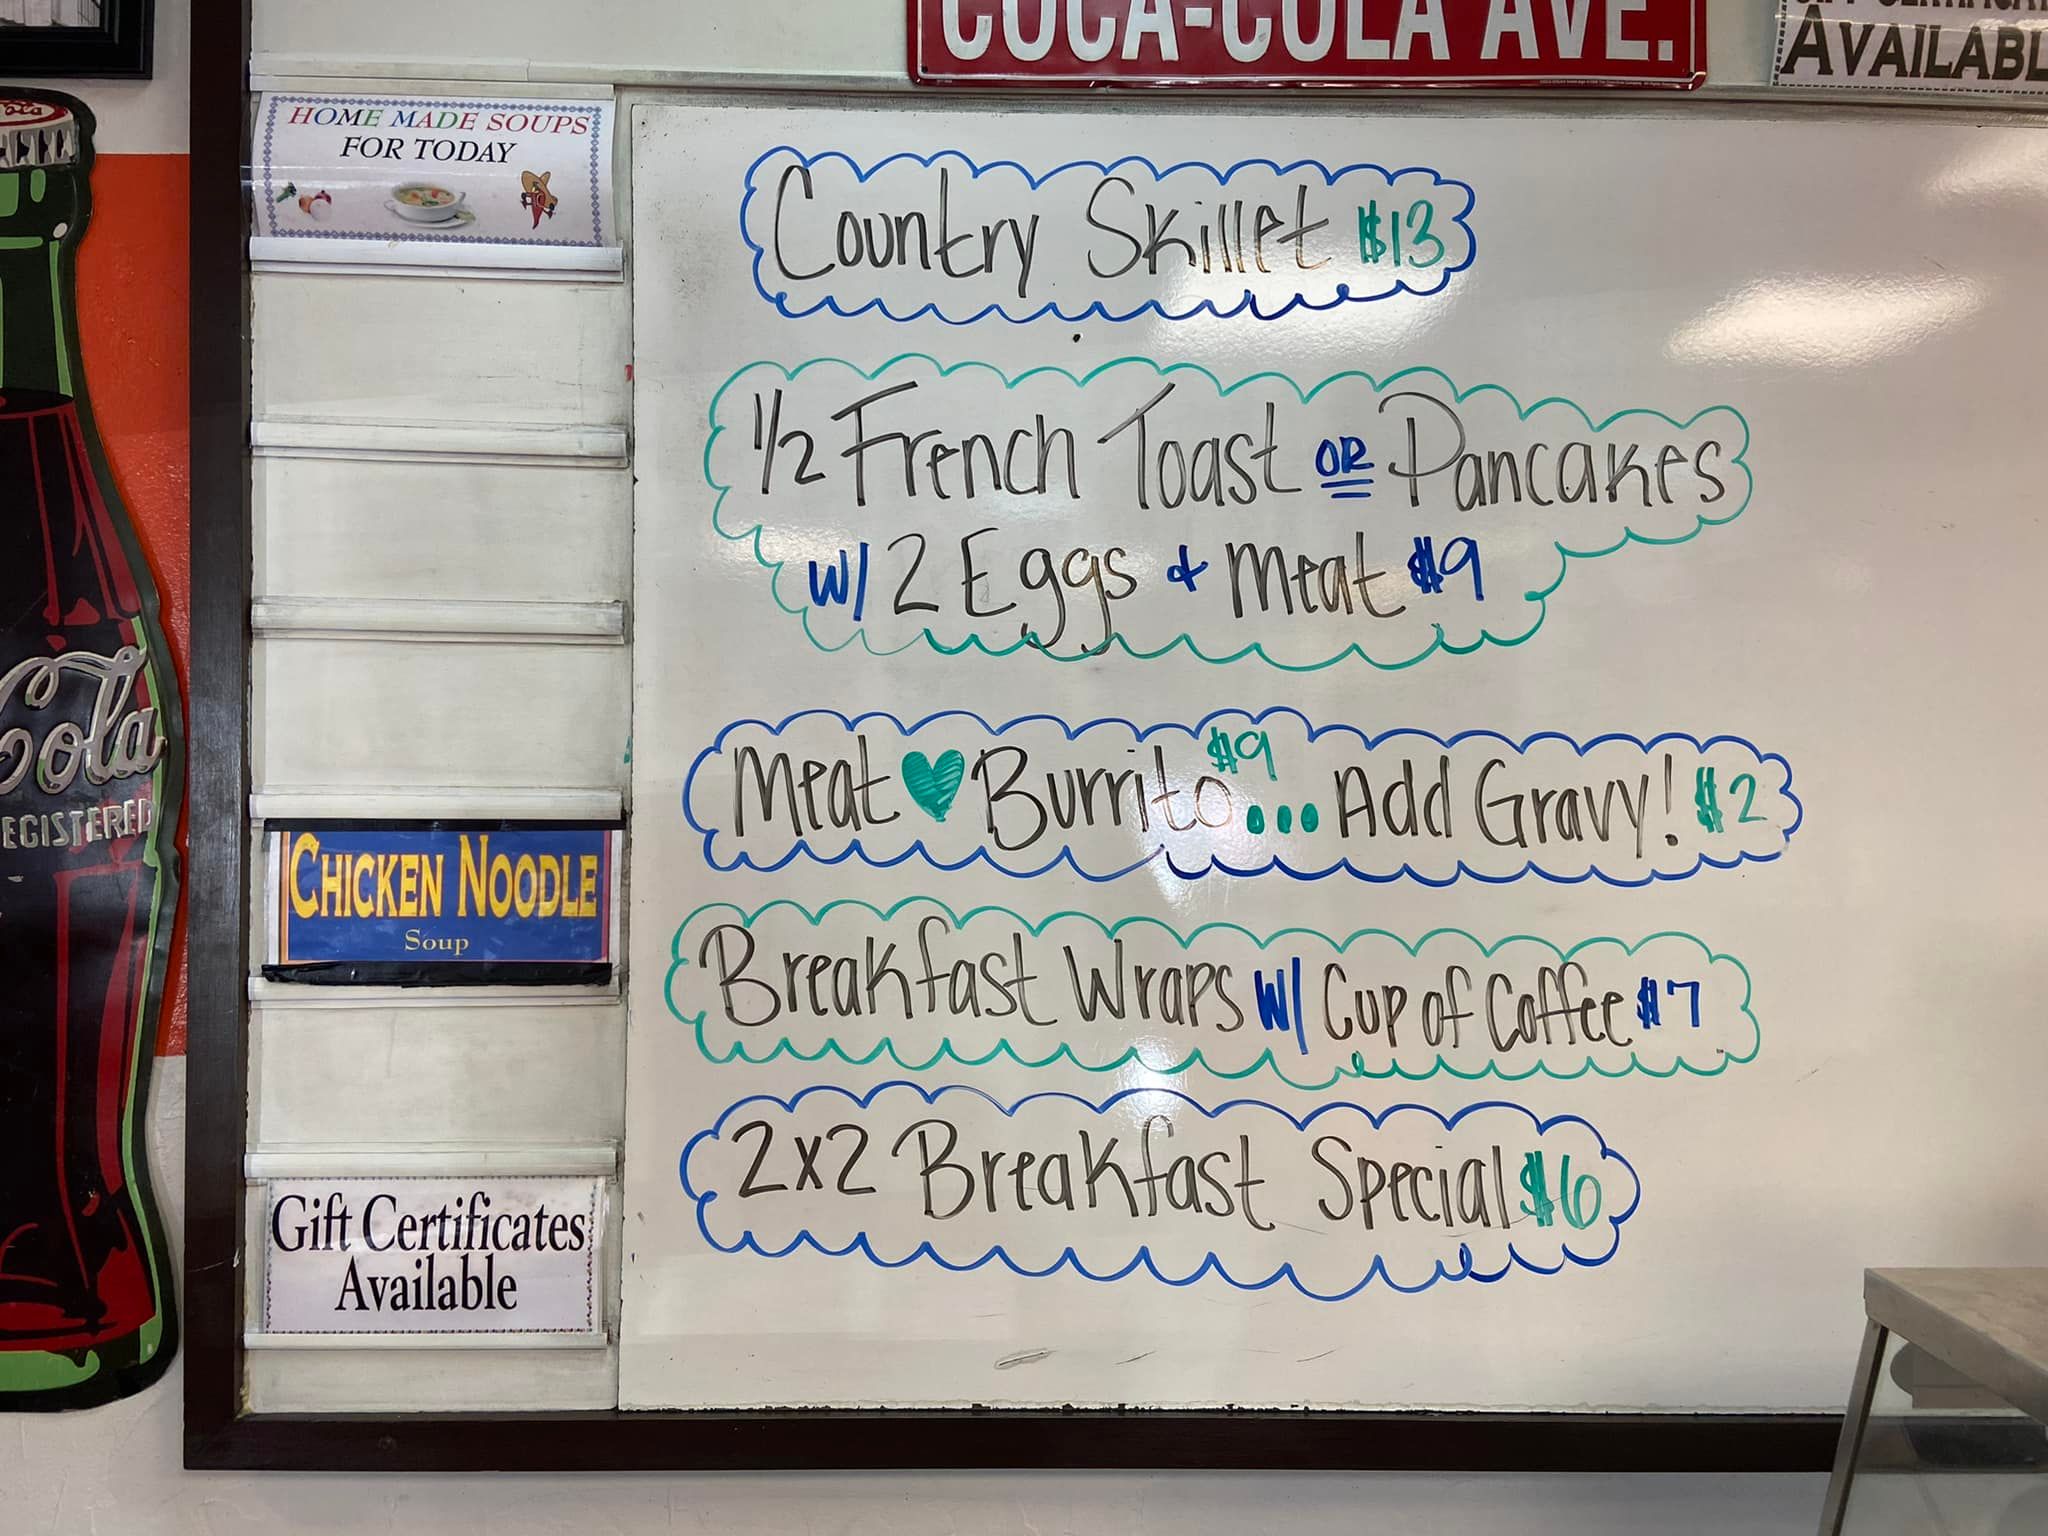 COCA-COLA AVE.
AVAILABL
Cola
HOME MADE SOUPS
FOR TODAY
Cola
EGISTERED
CHICKEN NOODLE
Soup
Gift Certificates
Available
Country Skillet $13
1/2 French Toast OR Pancakes
W/ 2 Eggs & Meat $9
Meat ♥ Burrito $9 ... Add Gravy! $2
Breakfast Wraps W/ Cup of Coffee $7
2x2 Breakfast Special $6